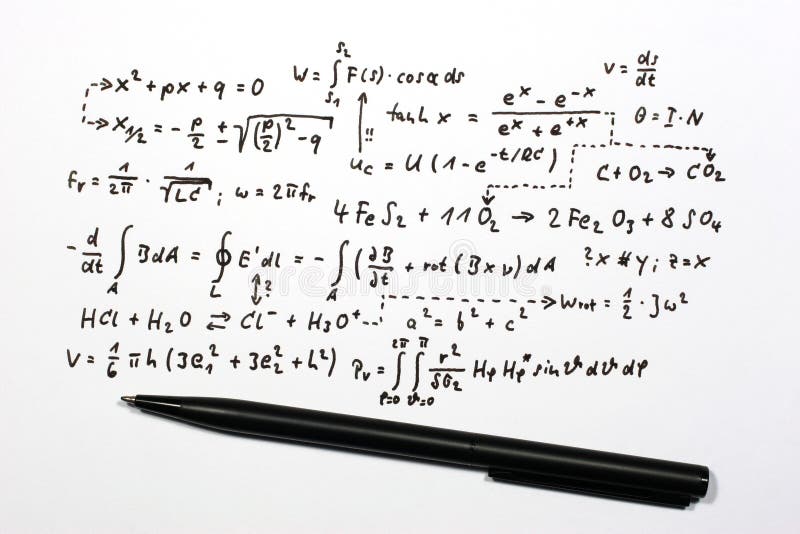 x² + px + q = 0
W = ∫_{s1}^{s2} F(s) · cosα ds
v = ds/dt
x_{1/2} = - p/2 ± √((p/2)² - q)
!!
tanh x = (e^x - e^{-x})/(e^x + e^{+x})
θ = I · N
f_r = 1/2π · 1/√LC ; ω = 2πf_r
u_c = U (1 - e^{-t/RC})
C + O₂ → CO₂
4 FeS₂ + 11 O₂ → 2 Fe₂O₃ + 8 SO₄
- d/dt ∫_A B dA = ∮_L E' dl = - ∫_A (∂B/∂t + rot (B x v) dA
?x # y ; z = x
?
HCl + H₂O ⇌ Cl⁻ + H₃O⁺
a² = b² + c²
W_rot = 1/2 · J ω²
V = 1/6 π h (3e₁² + 3e₂² + h²)
P_v = ∫_{φ=0}^{2π} ∫_{ϑ=0}^{π} r²/SG₂ Hφ Hφ* sinϑ dϑ dφ